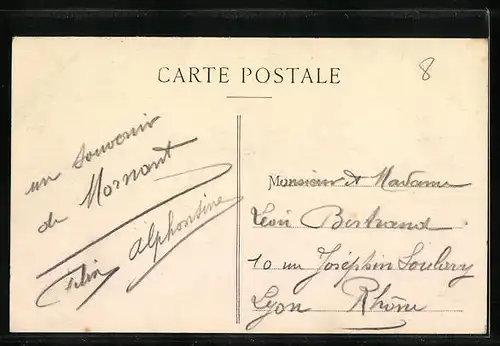 CARTE POSTALE
8
un souvenir
de Mornant
Félix Alphontine
Monsieur et Madame
Léon Bertrand
10 rue Joséphin Soulary
Lyon Rhône